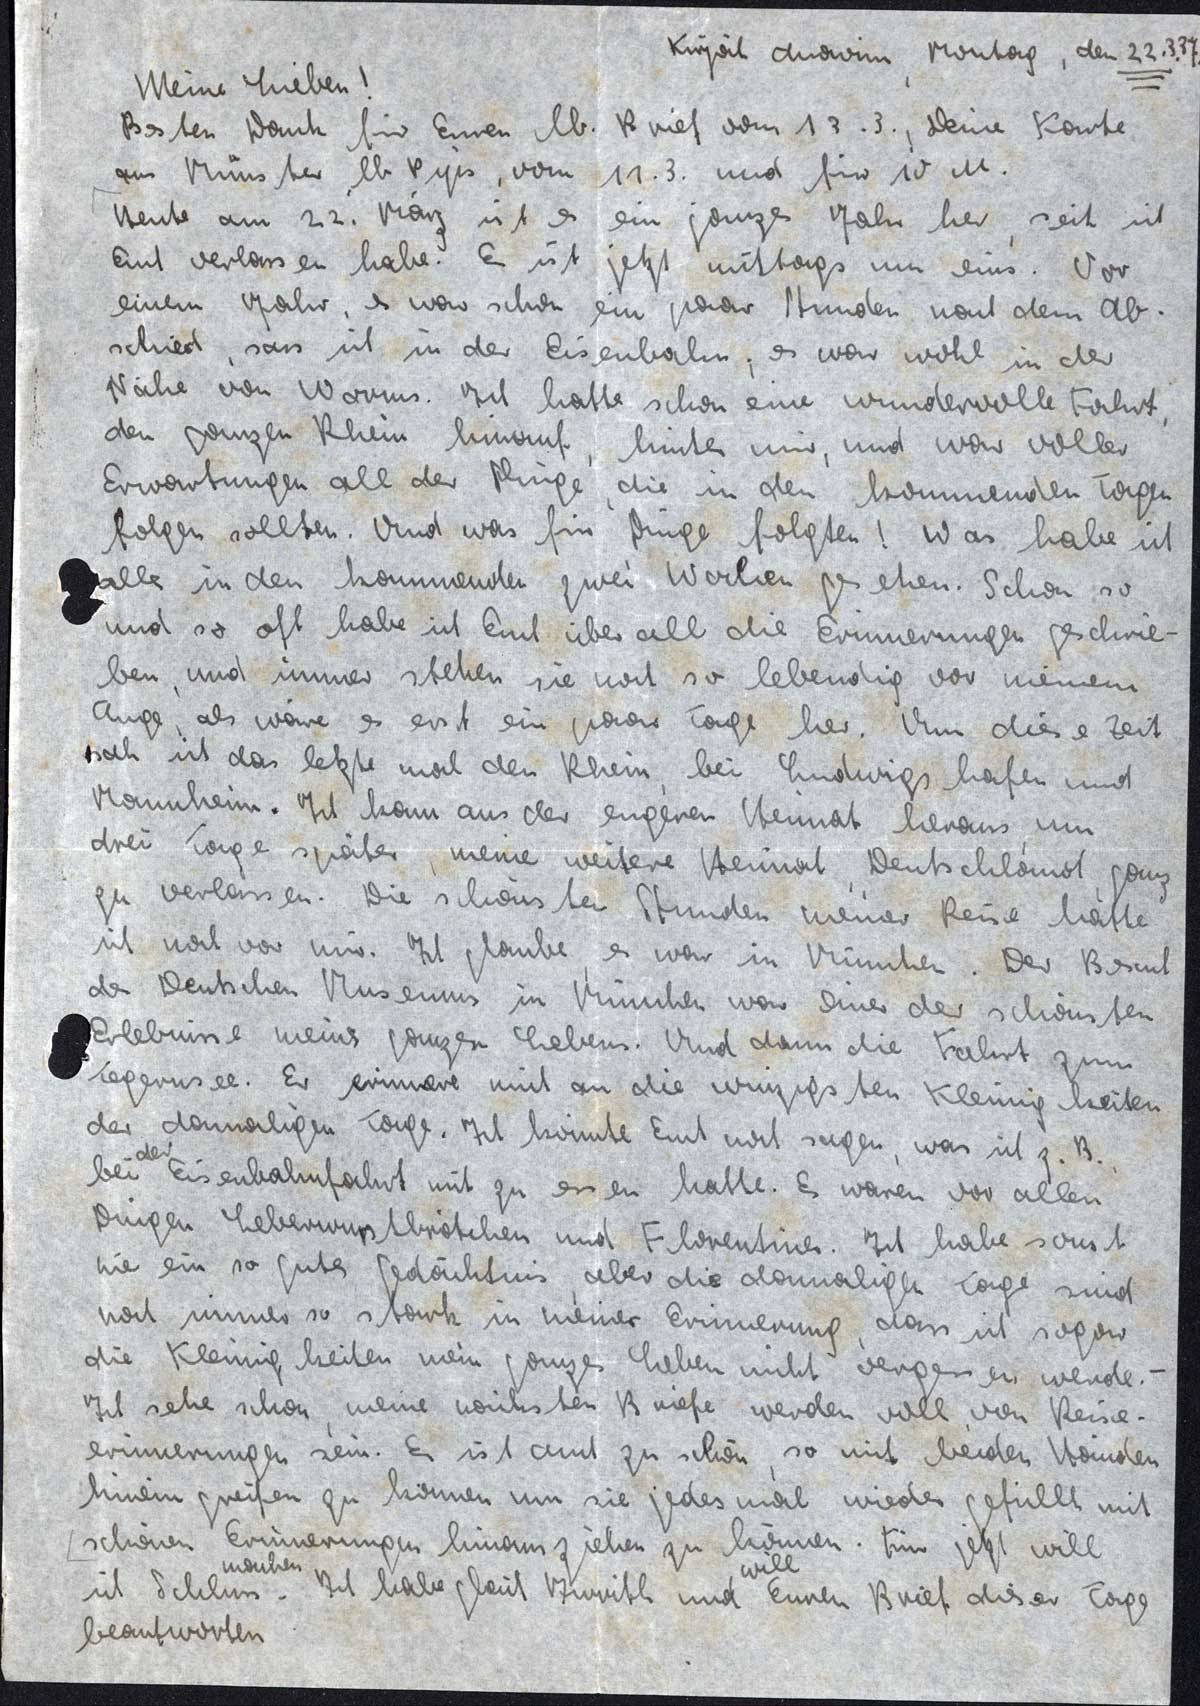 Kirjat Anavim, Montag, den 22.3.37.
Meine Lieben!
Besten Dank für Euren lb. Brief vom 13.3., Deine Karte
aus Münster, lb , vom 11.3. und für 10 M.
Heute am 22. März ist es ein ganzes Jahr her, seit ich
Euch verlassen habe. Es ist jetzt mittags um eins. Vor
einem Jahr, es war schon ein paar Stunden nach dem Ab-
schied, sass ich in der Eisenbahn, es war wohl in der
Nähe von Worms. Ich hatte schon eine wundervolle Fahrt,
den ganzen Rhein hinauf, hinter mir, und war voller
Erwartungen all der Dinge, die in den kommenden Tagen
folgen sollten. Und was für Dinge folgten! Was habe ich
alles in den kommenden zwei Wochen gesehen. Schon so
und so oft habe ich Euch über all die Erinnerungen geschrie-
ben, und immer stehen sie noch so lebendig vor meinem
Auge, als wäre es erst ein paar Tage her. Um diese Zeit
sah ich das letzte mal den Rhein, bei Ludwigshafen und
Mannheim. Ich kam aus der engeren Heimat heraus um
drei Tage später, meine weitere Heimat, Deutschland, ganz
zu verlassen. Die schönsten Stunden meiner Reise hatte
ich noch vor mir. Ich glaube, es war in München. Der Besuch
des Deutschen Museums in München war einer der schönsten
Erlebnisse meines ganzen Lebens. Und dann die Fahrt zum
Tegernsee. Er erinnere mich an die winzigsten Kleinigkeiten
der damaligen Tage. Ich könnte Euch noch sagen, was ich z.B.
bei der Eisenbahnfahrt mit zu essen hatte. Es waren vor allen
Dingen Leberwurstbrötchen und Florentiner. Ich habe sonst
nie ein so gutes Gedächtnis, aber die damaligen Tage sind
noch immer so stark in meiner Erinnerung, dass ich sogar
die Kleinigkeiten mein ganzes Leben nicht vergessen werde.–
Ich sehe schon, meine nächsten Briefe werden voll von Reise-
erinnerungen sein. Es ist auch zu schön, so mit beiden Händen
hinein greifen zu können um sie jedesmal wieder gefüllt mit
schönen Erinnerungen hinausziehen zu können. Für jetzt will
ich Schluss machen. Ich habe gleich Iwrith und will Euren Brief dieser Tage
beantworten